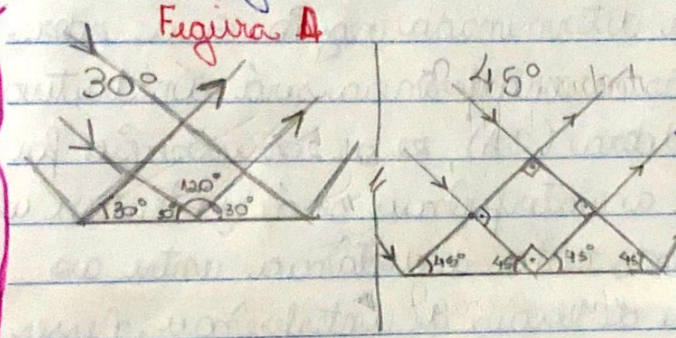 Figura A
30°
120°
30° 30° 30°
45°
45° 45° 45° 45°